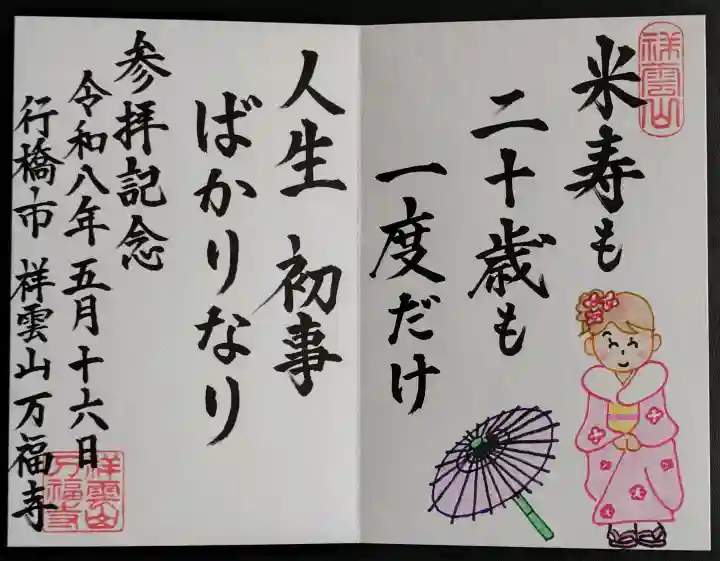 祥雲山
米寿も
二十歳も
一度だけ
人生 初事
ばかりなり
参拝記念
令和八年五月十六日
行橋市 祥雲山万福寺
祥雲山
万福寺